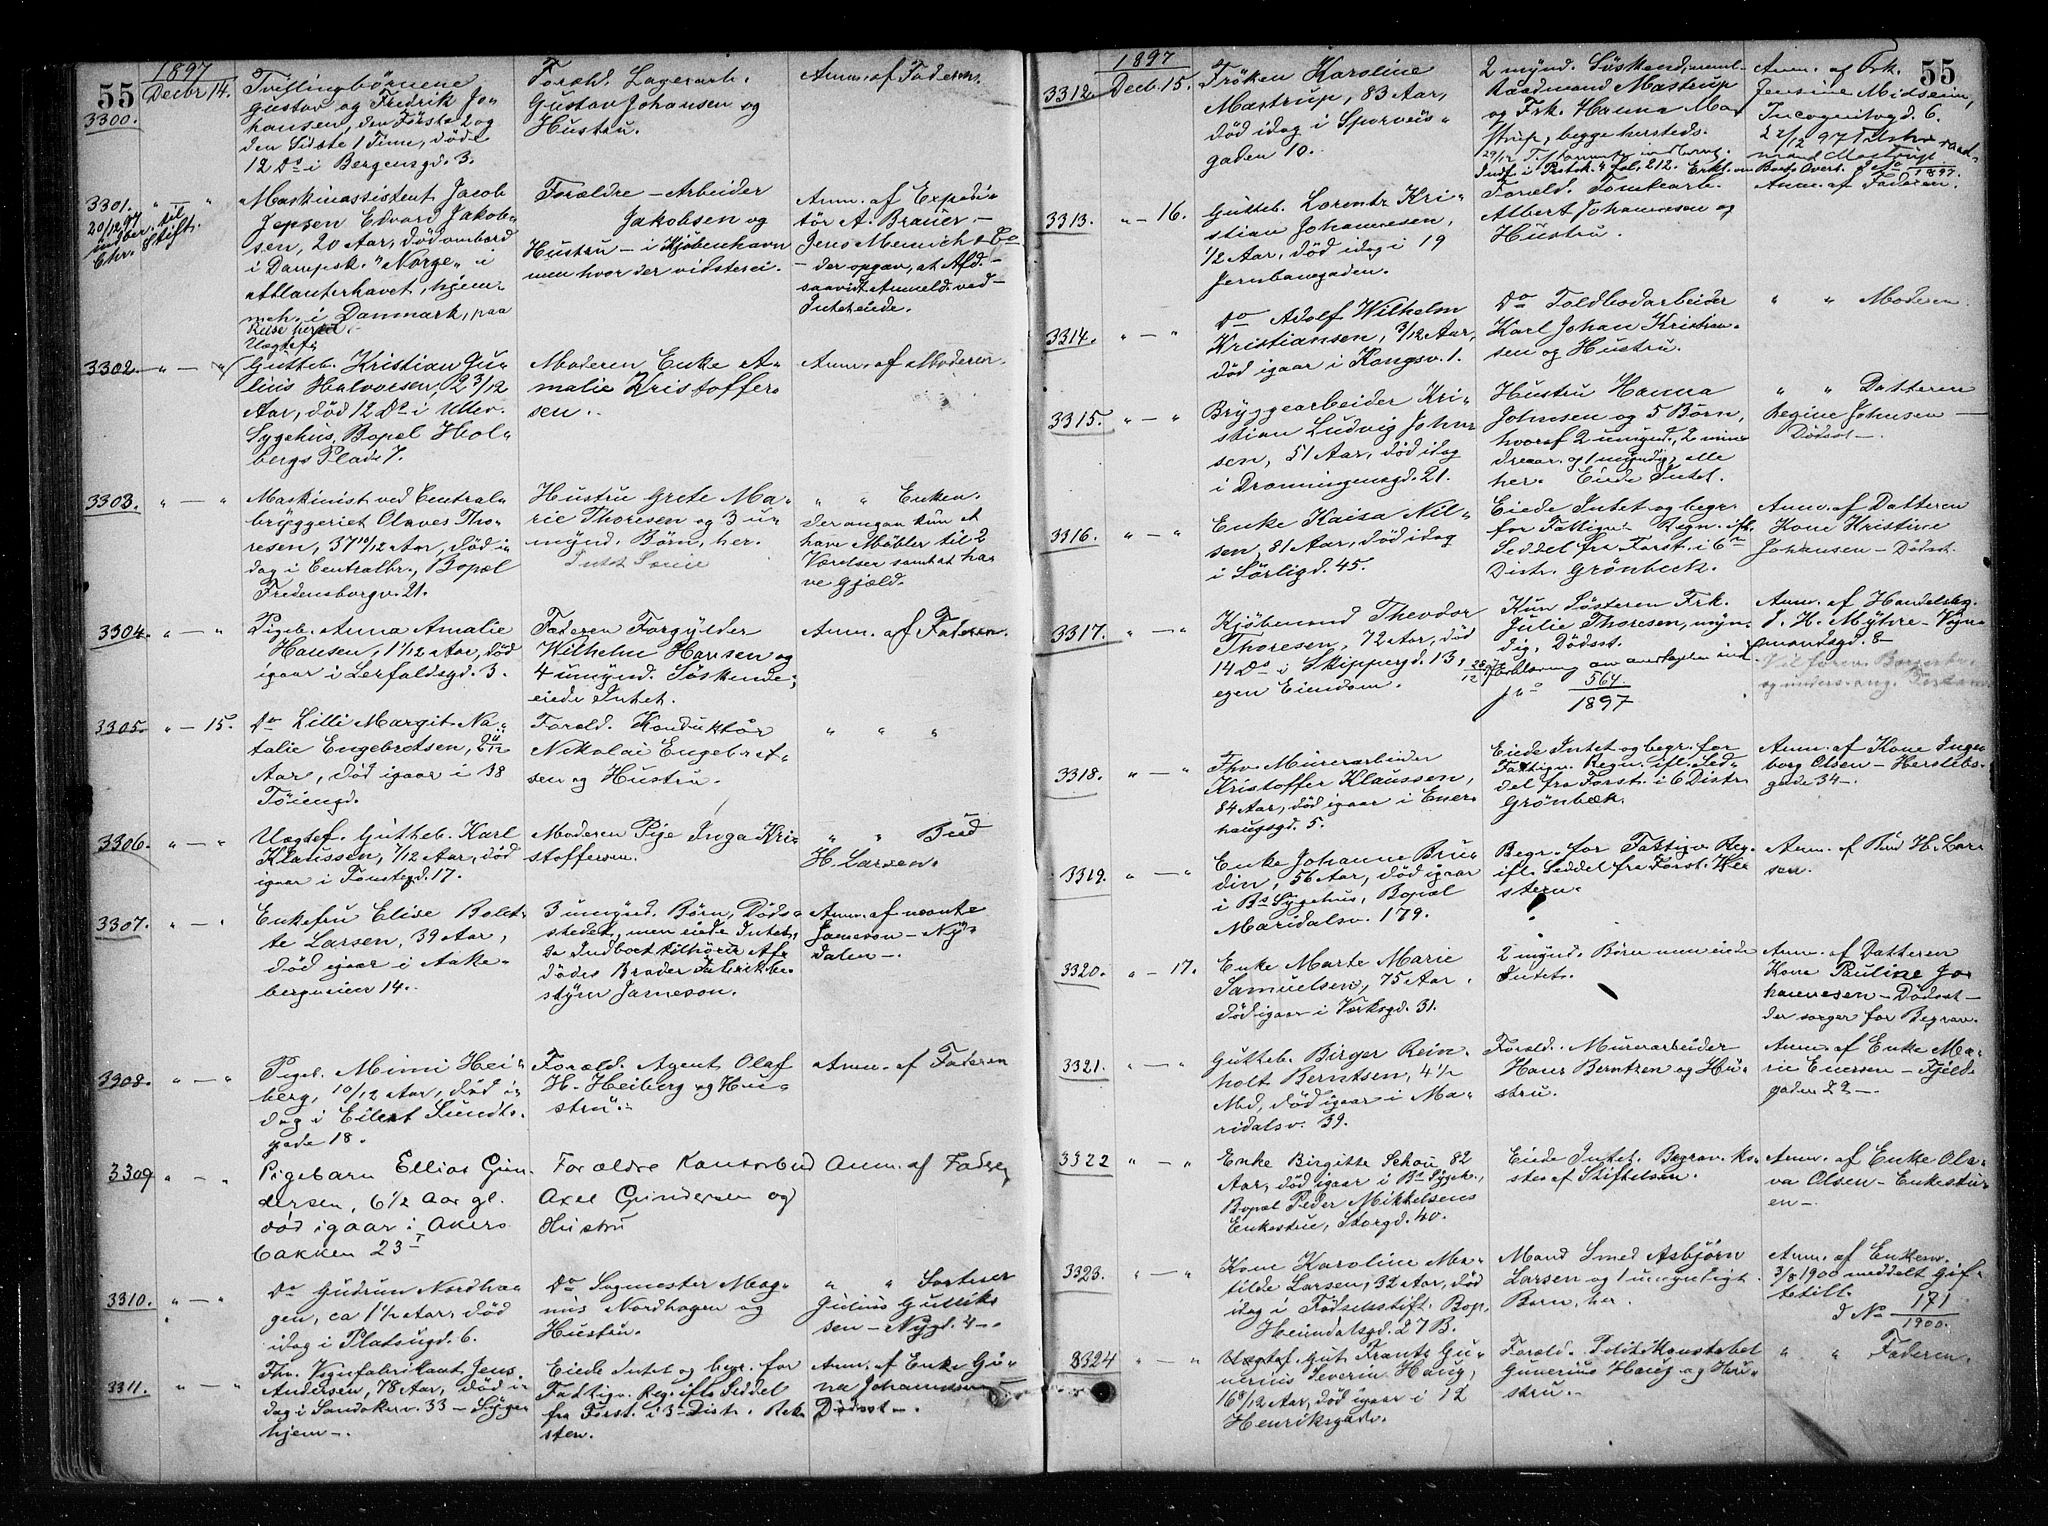 55
1897
Decbr 14.
3300.
Tvillingbørnene
Gustav og Fredrik Jo-
hansen, den Første 2 og
den Sidste 1 Time, døde
12 Ds i Bergensgd. 3.
Foræld. Lagerarb.
Gustav Johansen og
Hustru.
Anm. af Faderen.
3301. " — "
20/12 97
indber. til
Chr. Stift.
Maskinassistent Jacob
Jepsen Edvard Jakob-
sen, 20 Aar, død ombord
i Dampsk. "Norge" i
Atlanterhavet, hjem-
meh. i Danmark, paa
Reise hertil.
Forældre — Arbeider
Jakobsen og
Hustru — i Kjøbenhavn
men hvor der vidstes ei.
Anm. af Expedi-
tør A. Brauer —
Jens Meinich & Co
— der opgav, at Afd.
saavidt Anmeld. ved-
Intet eiede.
3302. " — "
Uægtef.
Gutteb. Kristian Ju-
lius Halvorsen, 2 3/12
Aar, død 12 Ds i Ullev.
Sygehus, Bopæl Hol-
bergs Plads 7.
Moderen Enke A-
malie Kristoffer-
sen.
Anm. af Moderen.
3303. " — "
Maskinist ved Central-
bryggeriet Olaves Tho-
resen, 37 10/12 Aar, død i-
dag i Centralbr., Bopæl
Fredensborgv. 21.
Hustru Grete Ma-
rie Thoresen og 3 u-
mynd. Børn, her.
" " Enken.
der angav kun at
have Møbler til 2
Værelser samt at ha-
ve Gjæld.
3304. " — "
Pigeb. Anna Amalie
Hansen, 1 1/12 Aar, død
igaar i Lerfaldsgd. 3.
Faderen Forgylder
Wilhelm Hansen og
4 umynd. Søskende,
eiede Intet.
Anm. af Faderen.
3305. " — 15.
Do Lilli Margit Na-
talie Engebretsen, 2 11/12
Aar, død igaar i 38
Tøiengd.
Foræld. Konduktør
Nikolai Engebret-
sen og Hustru.
" " "
3306. " — "
Uægtef. Gutteb. Karl
Klaussen, 7/12 Aar, død
igaar i Tomtegd. 17.
Moderen Pige Inga Kri-
stoffersen.
" " Bud
H. Larsen.
3307. " — "
Enkefru Elise Bolet-
te Larsen, 39 Aar,
død igaar i Aake-
bergveien 14.
3 umynd. Børn, Døds-
stedet, men eiede Intet,
da Indboet tilhører Af-
dødes Broder Fabrikbe-
styrer Jameson.
Anm. af
Jameson — Ny-
dalen —.
3308. " — "
Pigeb. Mimi Hei-
berg, 10/12 Aar, død i-
dag i Eilert Sundts-
gade 18.
Foræld. Agent Olaf
H. Heiberg og Hu-
stru.
Anm. af Faderen
3309 " — "
Pigebarn Ellias Gun-
dersen, 6 1/2 Aar gl.
død igaar i Akers-
bakken 23 I
Forældre Kontorbud
Axel Gundersen og
Hustru
Anm. af Fader
3310. " — "
Do Gudrun Nordha-
gen, ca 1 1/2 Aar, død
idag i Platougd. 6.
Do Sagmester Mag-
nus Nordhagen og
Hustru.
" " Sorterer
Julius Gullik-
sen — Nygd. 4 —.
3311. " — "
Fhv. Vognfabrikant Jens
Andersen, 78 Aar, død i-
dag i Sandakerv. 33 — Syge-
hjem —.
Eiede Intet og begr. for
Fattigv. Reg. ifl. Seddel
fra Forst. i 3die Distr. Rek-
sten.
Anm. af Enke Gu-
na Johannesen
Dødsst —.
55
1897
3312. Decb. 15.
Frøken Karoline
Mastrup, 83 Aar,
død idag i Sporveis-
gaden 10.
2 mynd. Søskende, neml.
Raadmand Mastrup
og Frk. Hanna Ma-
strup, begge hersteds.
Indf. i Protok. 4 fol. 212.
Anm. af Frk.
Jensine Midseim,
Incognitogd. 6.
3313. " — 16.
Gutteb. Lorentz Kri-
stian Johannesen,
1/2 Aar, død idag i 19
Jernbanegaden.
Foræld. Tomtearb.
Albert Johannesen og
Hustru.
Anm. af Faderen.
3314. " — "
Do Adolf Wilhelm
Kristiansen, 3/12 Aar,
død igaar i Kongsv. 1.
Do Toldbodarbeider
Karl Johan Kristian-
sen og Hustru.
" " Moderen
3315. " — "
Bryggearbeider Kri-
stian Ludvig John-
sen, 51 Aar, død idag
i Dronningensgd. 21.
Hustru Hanna
Johnsen og 5 Børn,
hvoraf 2 umynd., 2 min-
dreaar. og 1 myndig, alle
her. Eiede Intet.
" " Datteren
Regine Johnsen —
Dødsst —.
3316. " — "
Enke Kaisa Nil-
sen, 81 Aar, død idag
i Sørligd. 45.
Eiede Intet og begr.
for Fattigv. Regn. ifl.
Seddel fra Forst. i 6te
Distr. Grønbeck.
Anm. af Datteren
Kone Kristine
Johansen — Dødsst.
3317. " — "
Kjøbmand Theodor
Thoresen, 72 Aar, død
14 Ds i Skippergd. 13,
egen Eiendom.
Kun Søsteren Frk.
Julie Thoresen, myn-
dig, Dødsst.
Jno 564/1897
Anm. af Handelsbg.
J. H. Myhre — Vogn-
mandsgd. 8
3318. " — "
Fhv. Murerarbeider
Kristoffer Klaussen,
84 Aar, død igaar i Ener-
haugsgd. 5.
Eiede Intet og begr. for
Fattigv. Regn. ifl. Sed-
del fra Forst. i 6 Distr.
Grønbæk.
Anm. af Kone Inge-
borg Olsen — Herslebs-
gade 34 —.
3319. " — "
Enke Johanne Bru-
din, 56 Aar, død igaar
i Bs Sygehus, Bopæl
Maridalsv. 179.
Begr. for Fattigv. Reg.
ifl. Seddel fra Forst.
Anm. af Bud H. Lar-
sen.
3320. " — 17.
Enke Marte Marie
Samuelsen, 75 Aar,
død igaar i Værksgd. 31.
2 mynd. Børn men eiede
Intet.
Anm. af Datteren
Kone Pauline Jo-
hannesen — Dødsst —
der sørger for Begrav.
3321. " — "
Gutteb. Birger Rein-
holt Berntsen, 4 1/2
Md, død igaar i Ma-
ridalsv. 39.
Foræld. Murerarbeider
Hans Berntzen og Hu-
stru.
Anm. af Enke Ma-
rie Enersen — Fjeld-
gaden 22 —.
3322 " — "
Enke Birgitte Schou, 82
Aar, død igaar i Bs Sygeh.,
Bopæl Peder Mikkelsens
Enkestue, Storgd. 40.
Eiede Intet. Begrav. ko-
stes af Stiftelsen.
Anm. af Enke Ola-
va Olsen — Enkestu-
en —.
3323. " — "
Kone Karoline Ma-
tilde Larsen, 32 Aar, død
idag i Fødselsstift. Bop.
Heimdalsgd. 27 B.
Mand Smed Asbjørn
Larsen og 1 umyndigt
Barn, her.
Anm. af Enkem.
3/8 1900 meddelt Gif-
tetill.
J No 171/1900.
3324 " — "
Uægtef. Gut. Frantz Gu-
nerius Severin Haug,
16 8/12 Aar, død igaar i 12
Henriksgade.
Foræld. Politikonstabel
Gunerius Haug og Hu-
stru.
" " Faderen.